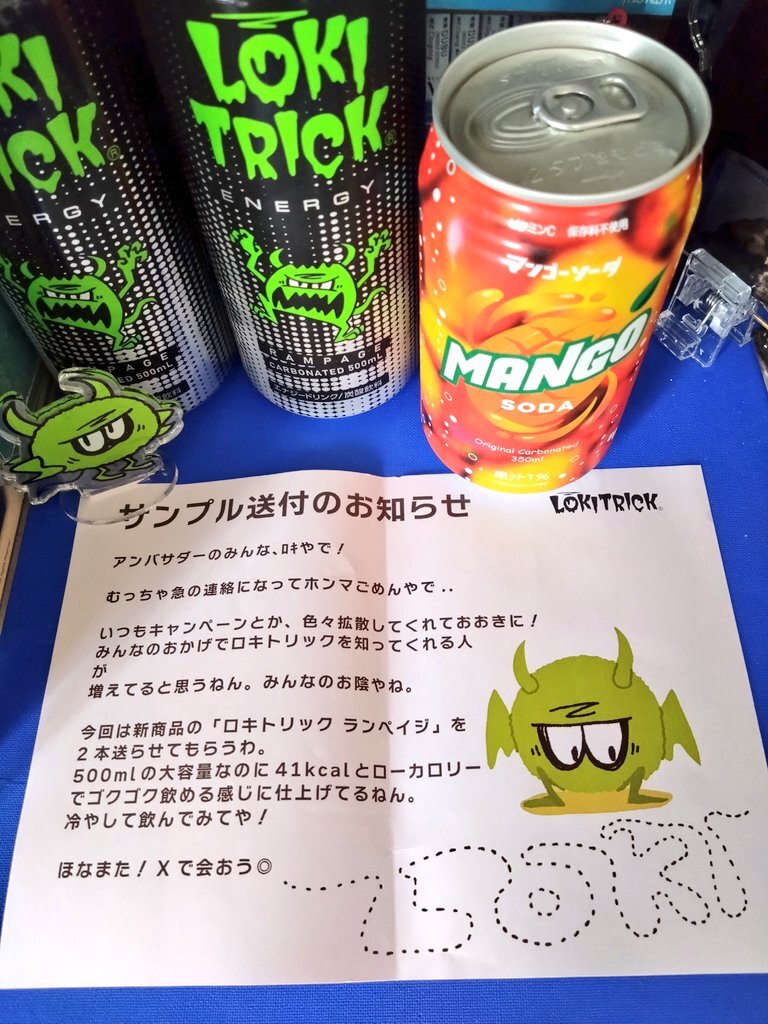 KI
RICK
ERGY
PAGE
ED 500mL
LOKI
TRICK®
ENERGY
RAMPAGE
CARBONATED 500mL
エナジードリンク/炭酸飲料
ビタミンC 保存料不使用
マンゴーソーダ
MANGO
SODA
Original Carbonated
350ml
果汁1%
サンプル送付のお知らせ
LOKITRICK®
アンバサダーのみんな、ﾛｷやで!
むっちゃ急の連絡になってホンマごめんやで..
いつもキャンペーンとか、色々拡散してくれておおきに!
みんなのおかげでロキトリックを知ってくれる人
が
増えてると思うねん。みんなのお陰やね。
今回は新商品の「ロキトリック ランペイジ」を
2本送らせてもらうわ。
500mlの大容量なのに41kcalとローカロリー
でゴクゴク飲める感じに仕上げてるねん。
冷やして飲んでみてや!
ほなまた! Xで会おう◎
Loki